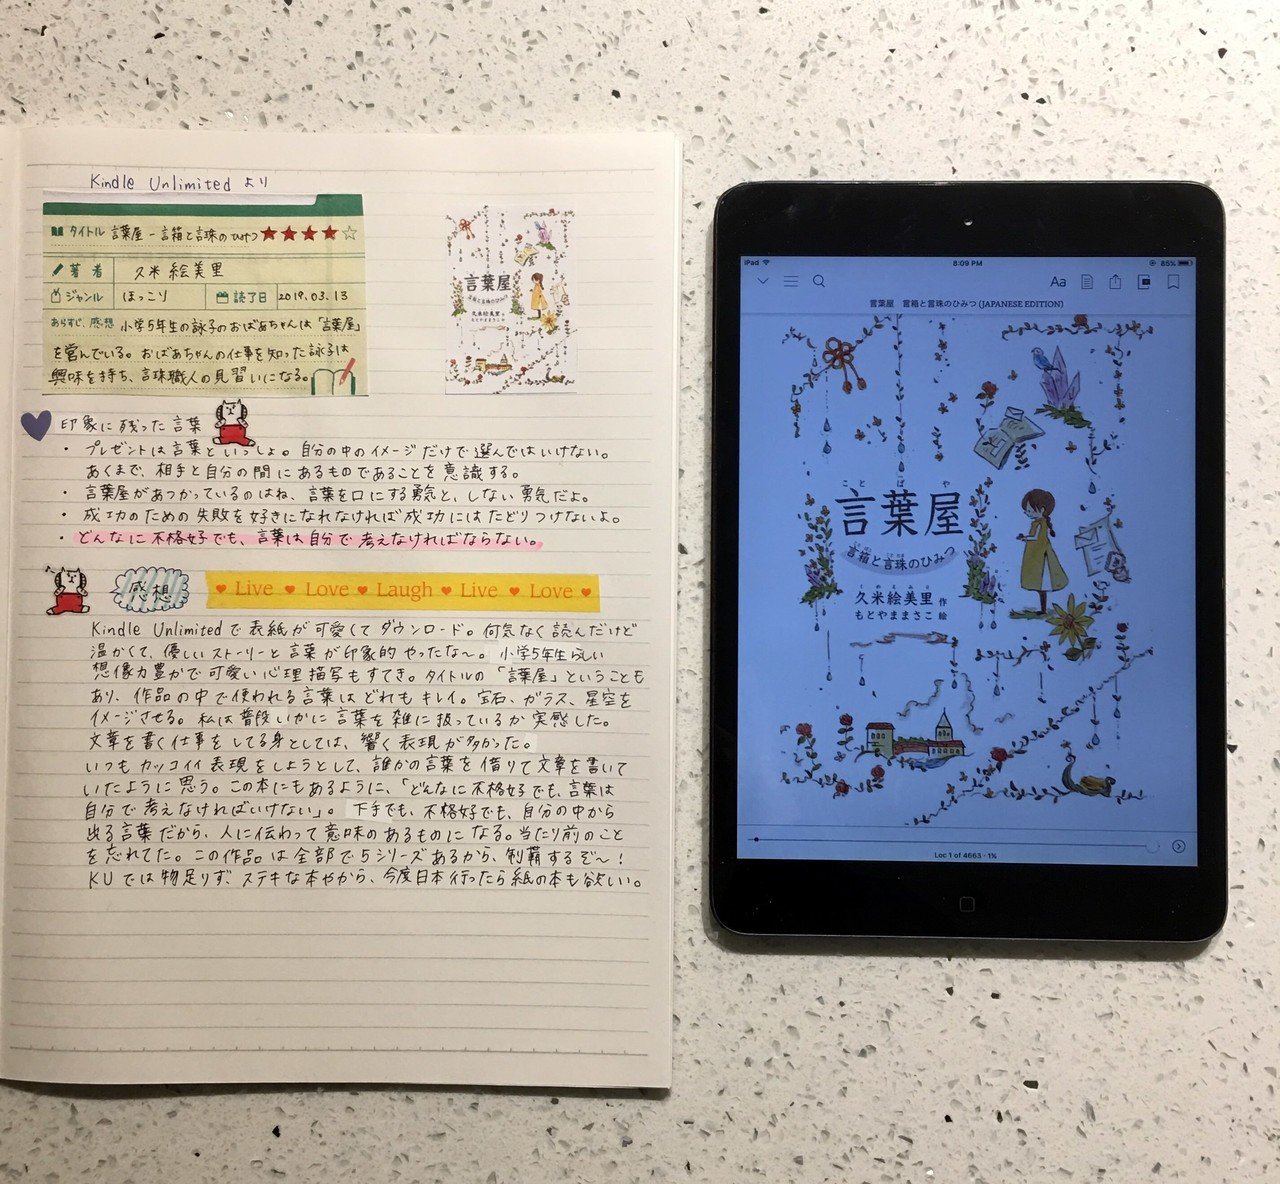 Kindle Unlimited より
タイトル 言葉屋 - 言箱と言珠のひみつ ★★★★☆
著者 久米 絵美里
ジャンル ほっこり 読了日 2019.03.13
あらすじ、感想 小学5年生の詠子のおばあちゃんは「言葉屋」
を営んでいる。おばあちゃんの仕事を知った詠子は
興味を持ち、言珠職人の見習いになる。
言葉屋
言箱と言珠のひみつ
久米絵美里 作
もとやままさこ 絵
印象に残った言葉
・プレゼントは言葉といっしょ。自分の中のイメージだけで選んではいけない。
あくまで、相手と自分の間にあるものであることを意識する。
・言葉屋があつかっているのはね、言葉を口にする勇気と、しない勇気だよ。
・成功のための失敗を好きになれなければ成功にはたどりつけないよ。
・どんなに不格好でも、言葉は自分で考えなければならない。
感想
♥ Live ♥ Love ♥ Laugh ♥ Live ♥ Love ♥
Kindle Unlimitedで表紙が可愛くてダウンロード。何気なく読んだけど
温かくて、優しいストーリーと言葉が印象的やったな〜。小学5年生らしい
想像力豊かで可愛い心理描写もすてき。タイトルの「言葉屋」ということも
あり、作品の中で使われる言葉はどれもキレイ。宝石、ガラス、星空を
イメージさせる。私は普段いかに言葉を雑に扱っているか実感した。
文章を書く仕事をしてる身としては、響く表現が多かった。
いつもカッコイイ表現をしようとして、誰かの言葉を借りて文章を書いて
いたように思う。この本にもあるように、「どんなに不格好でも、言葉は
自分で考えなければいけない」。下手でも、不格好でも、自分の中から
出る言葉だから、人に伝わって意味のあるものになる。当たり前のこと
を忘れてた。この作品は全部で5シリーズあるから、制覇するぞ〜！
KUでは物足りず、ステキな本やから、今度日本行ったら紙の本も欲しい。
iPad 8:09 PM 85%
Aa
言葉屋 言箱と言珠のひみつ (JAPANESE EDITION)
ことばや
言葉屋
言箱と言珠のひみつ
くめえみり
久米絵美里 作
もとやままさこ 絵
Loc 1 of 4663 · 1%